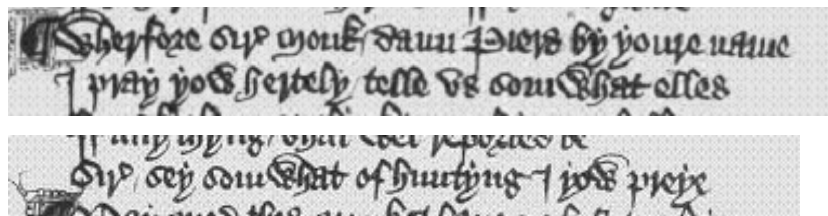 Wherfore Sire Monk daun Piers by youre name
I pray yow hertely telle vs somwhat elles
Sire sey somwhat of huntyng I yow preye